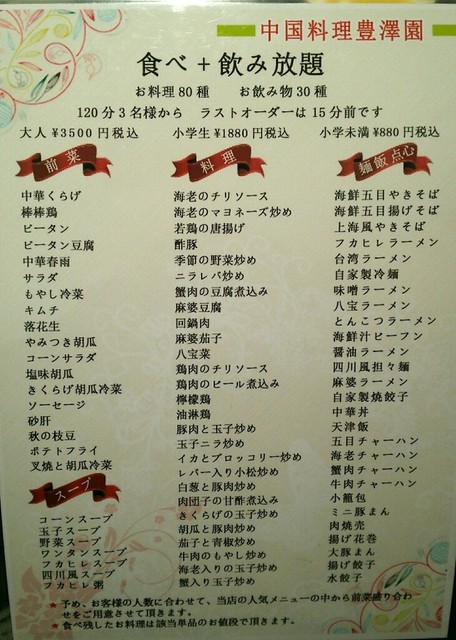 中国料理豊澤園
食べ+飲み放題
お料理80種 お飲み物30種
120分3名様から ラストオーダーは15分前です
大人 ¥3500円税込 小学生 ¥1880円税込 小学未満 ¥880円税込
前菜
中華くらげ
棒棒鶏
ピータン
ピータン豆腐
中華春雨
サラダ
もやし冷菜
キムチ
落花生
やみつき胡瓜
コーンサラダ
塩味胡瓜
きくらげ胡瓜冷菜
ソーセージ
砂肝
秋の枝豆
ポテトフライ
叉焼と胡瓜冷菜
スープ
コーンスープ
玉子スープ
野菜スープ
ワンタンスープ
フカヒレスープ
四川風スープ
フカヒレ粥
料理
海老のチリソース
海老のマヨネーズ炒め
若鶏の唐揚げ
酢豚
季節の野菜炒め
ニラレバ炒め
蟹肉の豆腐煮込み
麻婆豆腐
回鍋肉
麻婆茄子
八宝菜
鶏肉のチリソース
鶏肉のビール煮込み
檸檬鶏
油淋鶏
豚肉と玉子炒め
玉子ニラ炒め
イカとブロッコリー炒め
レバー入り小松炒め
白葱と豚肉炒め
肉団子の甘酢煮込み
きくらげの玉子炒め
胡瓜と豚肉炒め
茄子と青椒炒め
牛肉のもやし炒め
海老入りの玉子炒め
蟹入り玉子炒め
麺飯点心
海鮮五目やきそば
海鮮五目揚げそば
上海風やきそば
フカヒレラーメン
台湾ラーメン
自家製冷麺
味噌ラーメン
八宝ラーメン
とんこつラーメン
海鮮汁ビーフン
醤油ラーメン
四川風担々麺
麻婆ラーメン
自家製焼餃子
中華丼
天津飯
五目チャーハン
海老チャーハン
蟹肉チャーハン
牛肉チャーハン
小籠包
ミニ豚まん
肉焼売
揚げ花巻
大豚まん
揚げ餃子
水餃子
★予め、お客様の人数に合わせて、当店の人気メニューの中から前菜盛り合わ
せをご用意させて頂きます。
★食べ残したお料理は該当単品のお値段で頂きます。